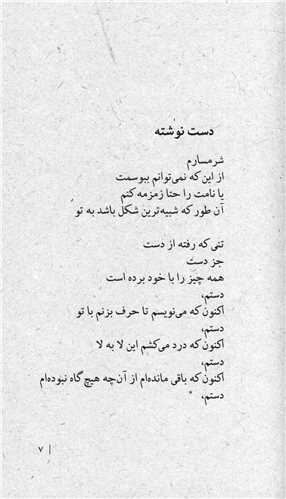 دست نوشته
شرمسارم
از این که نمی‌توانم ببوسمت
یا نامت را حتا زمزمه کنم
آن طور که شبیه‌ترین شکل باشد به تو
تنی که رفته از دست
جز دست
همه چیز را با خود برده است
دستم،
اکنون که می‌نویسم تا حرف بزنم با تو
دستم،
اکنون که درد می‌کشم این لا به لا
دستم،
اکنون که باقی مانده‌ام از آن‌چه هیچ گاه نبوده‌ام
دستم، *
| ۷